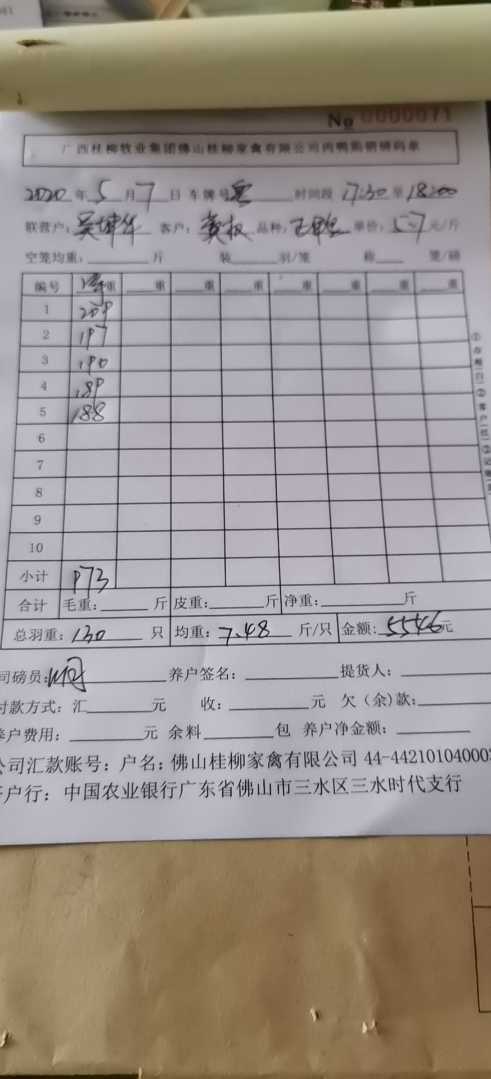 No 0000071
广西桂柳牧业集团佛山桂柳家禽有限公司肉鸭购销磅码单
2020 年 5 月 7 日 车牌号 时间段 17:30 至 18:00
联营户: 吴坤华 客户: 黄权 品种: 单价: 5.7 元/斤
空笼均重: 斤 装 羽/笼 称 笼/磅
编号 净重 重 重 重 重 重 重
1 209
2 197
3 190
4 189
5 188
6
7
8
9
10
小计 973
合计 毛重: 斤 皮重: 斤 净重: 斤
总羽重: 130 只 均重: 7.48 斤/只 金额: 5546元
司磅员: 养户签名: 提货人:
付款方式: 汇 元 收: 元 欠(余)款:
养户费用: 元 余料 包 养户净金额:
公司汇款账号: 户名: 佛山桂柳家禽有限公司 44-44210104000
开户行: 中国农业银行广东省佛山市三水区三水时代支行